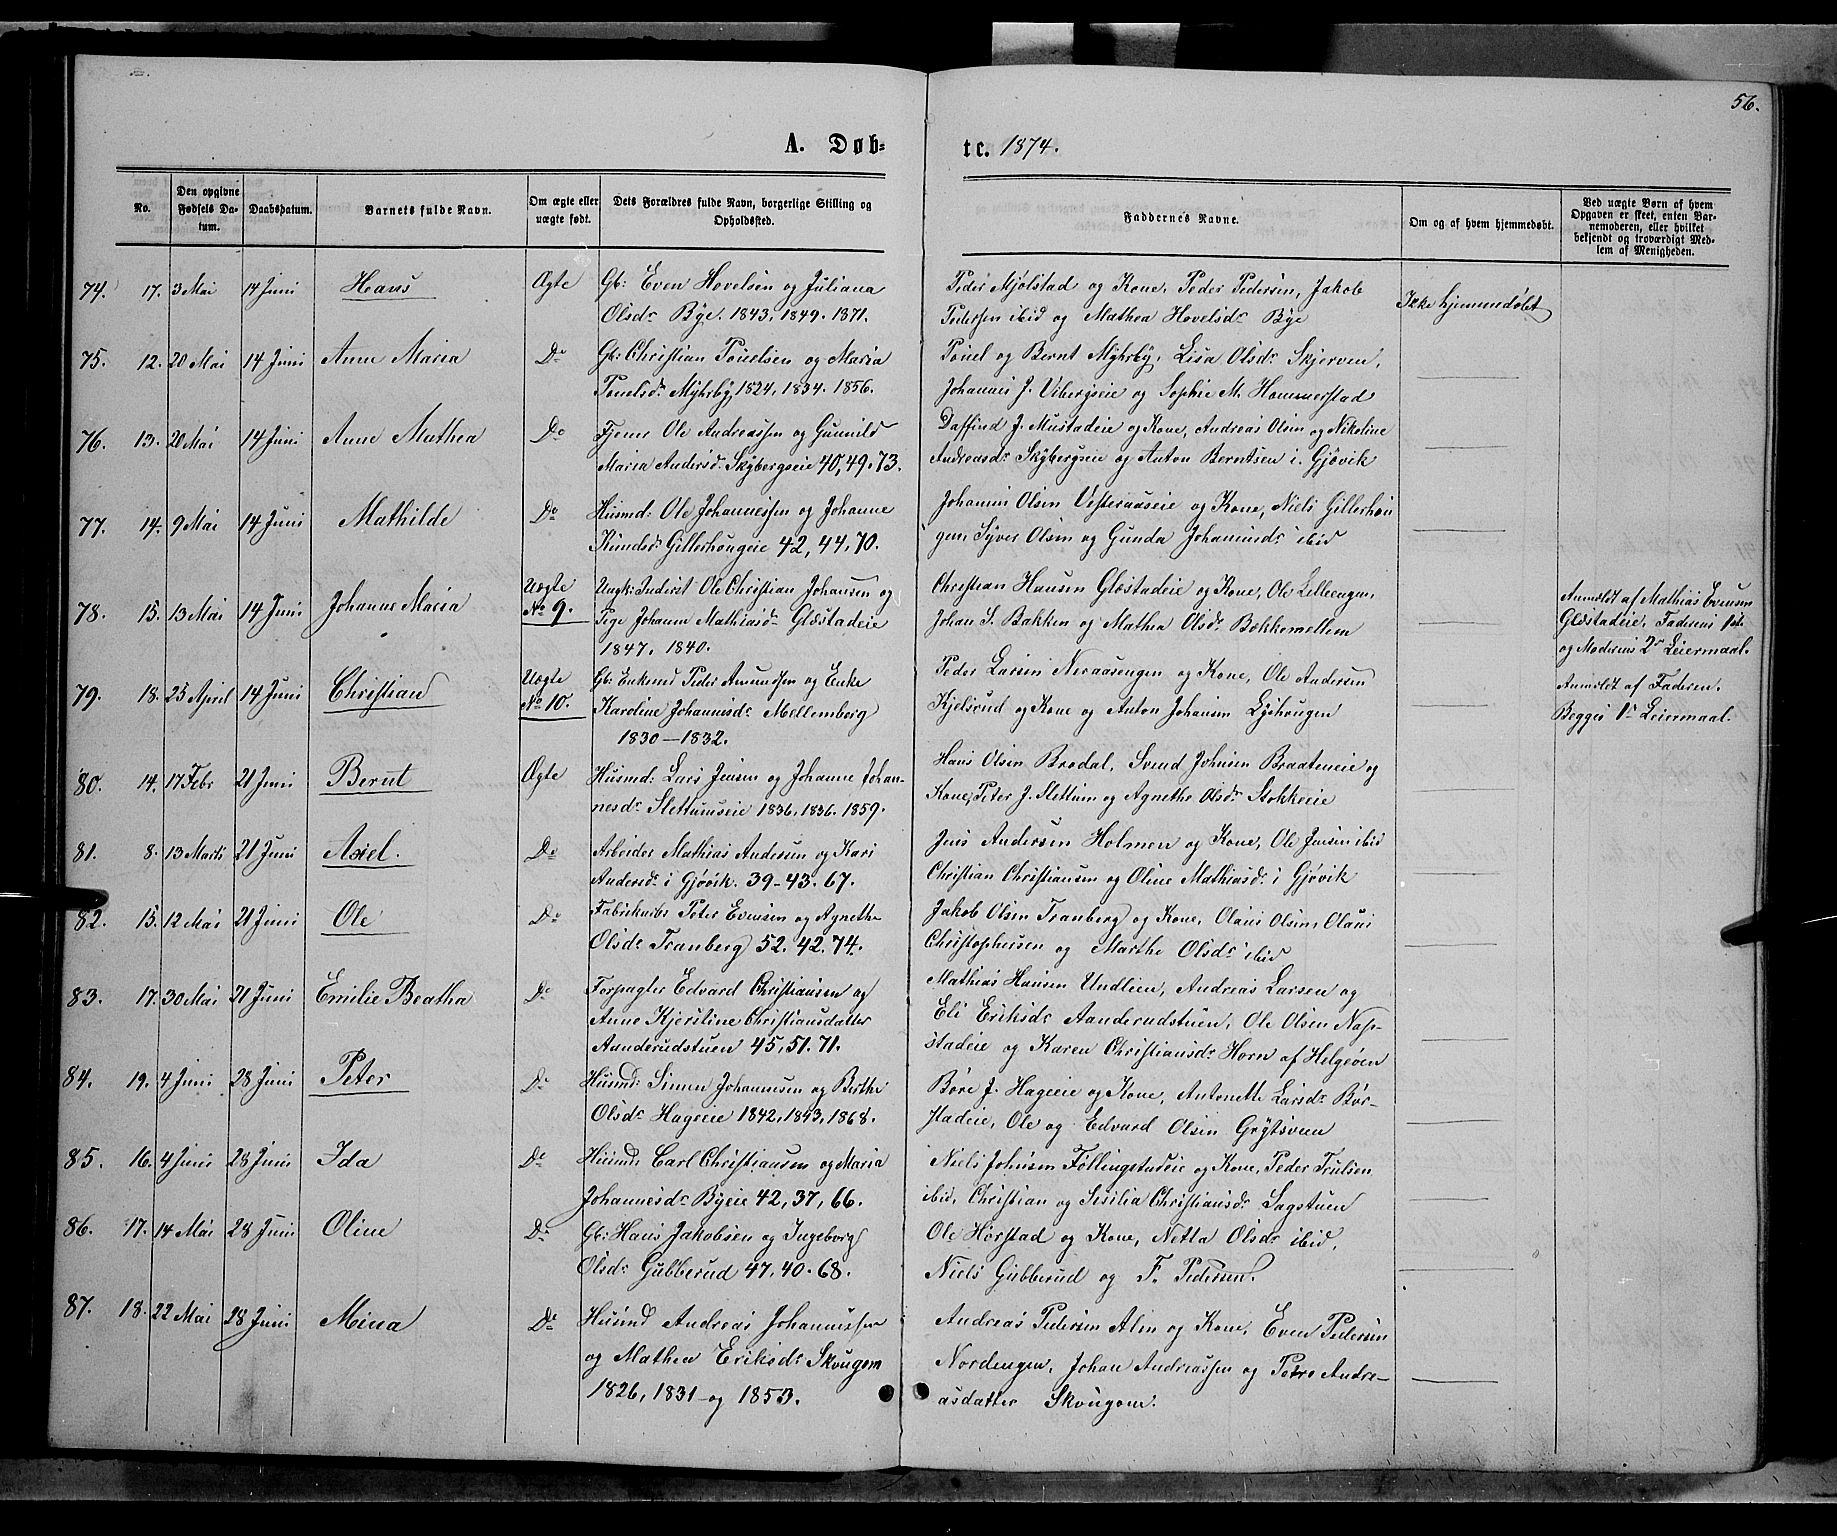 56.
A. Døb-
te. 1874.
No.
Den opgivne
Fødsels Da-
tum.
Daabsdatum.
Barnets fulde Navn.
Om ægte eller
uægte født.
Dets Forældres fulde Navn, borgerlige Stilling og
Opholdssted.
Faddernes Navne.
Om og af hvem hjemmedøbt.
Ved uægte Børn af hvem
Opgaven er skeet, enten Bar-
nemoderen, eller hvilket
bekjendt og troværdigt Med-
lem af Menigheden.
74. 17. 3 Mai 14 Juni Hans Ægte Gb: Even Hovelsen og Juliana
Olsdr Bye. 1843, 1849. 1871.
Peder Mjølstad og Kone, Peder Pedersen, Jakob
Pedersen ibid og Mathea Hovelsdr Bye
Ikke hjemmedøbt
75. 12. 20 Mai 14 Juni Anne Maria Do Gb: Christian Pouelsen og Maria
Pouelsdr Myhrby, 1824, 1834. 1856.
Pouel og Bernt Myhrby, Lisa Olsdr Skjerven,
Johannes J. Vibergseie og Sophie M. Hammerstad
76. 13. 20 Mai 14 Juni Anne Mathea Do Fjener Ole Andreassen og Gunnild
Maria Andersd. Skybergseie 40, 49. 73.
Daffind J. Mustadeie og Kone, Andreas Olsen og Nikoline
Andreasdr Skybergseie og Anton Berntsen i Gjøvik
77. 14. 9 Mai 14 Juni Mathilde Do Husmd: Ole Johannessen og Johanne
Knudsdr Gillerhougeie 42, 44, 70.
Johannes Olsen Vesteraaseie og Kone, Niels Gillerhou
gen, Syver Olsen og Gunda Johannesdr ibid
78. 15. 13 Mai 14 Juni Johanne Maria Uægte
No 9.
Ungk: Inderst Ole Christian Johansen og
Pige Johanne Mathiasdr Glæstadeie
1847. 1840.
Christian Hansen Glæstadeie og Kone, Ole Lilleengen,
Johan S. Bakken og Mathea Olsdr Bækkemellem
Anmeldt af Mathias Evensen
Glæstadeie, Faderens 1ste
og Moderens 2r Leiermaal.
79. 18. 25 April 14 Juni Christian Uægte
No 10.
Gb. Enkemd Peder Amundsen og Enke
Karoline Johannesdr Mellemborg
1830-1832.
Peder Larsen Neraasengen og Kone, Ole Andersen
Kjelsrud og Kone og Anton Johansen Lyshougen
Anmeldt af Faderen.
Begges 1r Leiermaal.
80. 14. 17 Febr 21 Juni Bernt Ægte Husmd: Lars Jensen og Johanne Johan-
nesdr Slettumseie 1836, 1836. 1859.
Hans Olsen Brødal, Svend Johnsen Braateneie og
Kone, Peter J. Slettum og Agnethe Olsdr Stokkeeie
81. 8. 13 Marts 21 Juni Axel. Do Arbeider Mathias Andersen og Kari
Andersdr i Gjøvik. 39-43. 67.
Jens Andersen Holmen og Kone, Ole Jensen ibid
Christian Christiansen og Oline Mathiasdr i Gjøvik
82. 15. 12 Mai 21 Juni Ole Do Fabrikarbr Peter Evensen og Agnethe
Olsdr Tranberg 52. 42. 74.
Jakob Olsen Tranberg og Kone, Olaus Olsen, Olaus
Christophersen og Marthe Olsdr ibid
83. 17. 30 Mai 21 Juni Emilie Beatha Do Forpagter Edvard Christiansen og
Anne Kjerstine Christiansdatter
Aanderudstuen 45, 51. 71.
Mathias Hansen Undlien, Andreas Larsen og
Eli Eriksdr Aanderudstuen, Ole Olsen Næp-
stadeie og Karen Christiansdr Horn af Helgeøen
84. 19. 4 Juni 28 Juni Peter Do Husmd: Simen Johannesen og Berthe
Olsdr Hageeie 1842, 1843, 1868.
Børe J. Hageeie og Kone, Antonette Larsdr Bør-
stadeie, Ole og Edvard Olsen Grytsveen
85. 16. 4 Juni 28 Juni Ida Do Husmd: Carl Christiansen og Maria
Johannesdr Byeie 42, 37, 66.
Niels Johnsen Føllingstadeie og Kone, Peder Trulsen
ibid, Christian og Sisilia Christiansdr Sagstuen
86. 17. 14 Mai 28 Juni Oline Do Gb: Hans Jakobsen og Ingeborg
Olsdr Gubberud 47, 40. 68.
Ole Hørstad og Kone, Netta Olsdr ibid,
Niels Gubberud og F. Pedersen.
87. 18. 22 Mai 28 Juni Mina Do Husmd Andreas Johannessen
og Mathea Eriksdr Skougom
1826, 1831 og 1853.
Andreas Pedersen Alm og Kone, Even Pedersen
Nordengen, Johan Andreassen og Petre Andre-
asdatter Skougom.